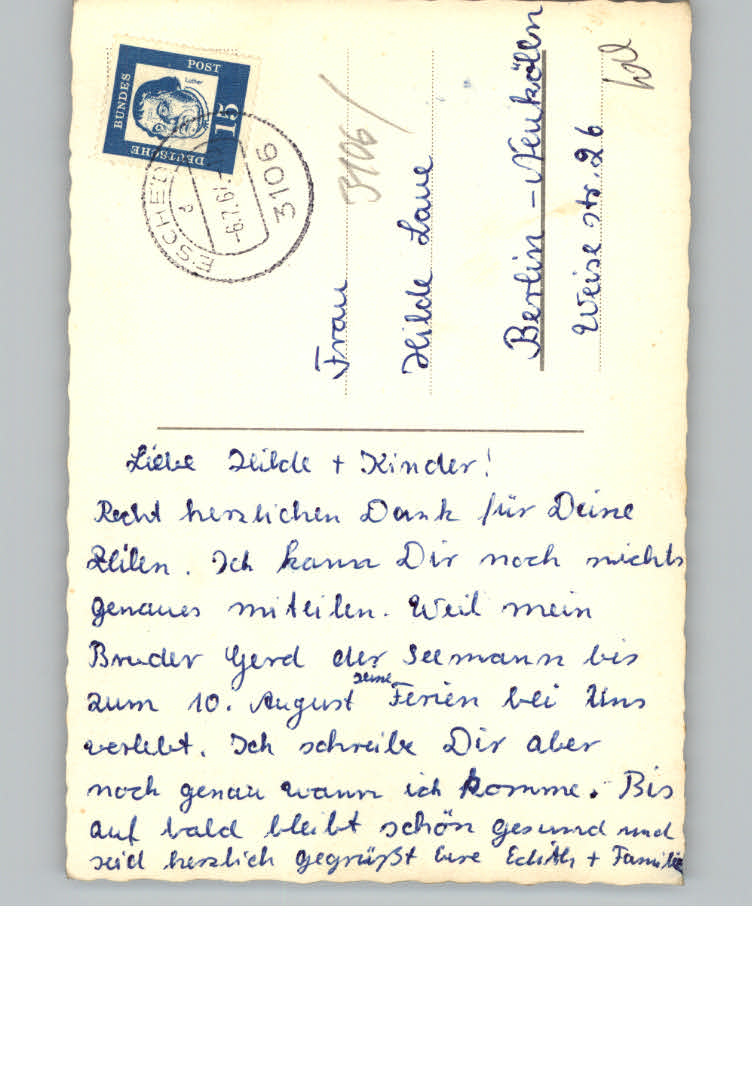 DEUTSCHE
BUNDES
POST
Luther
15
3106
-6.7.6
3106/
Frau
Hilde Laue
Berlin - Neukölln
Weise str. 26
Liebe Hilde + Kinder!
Recht herzlichen Dank für Deine
Zeilen. Ich kann Dir noch nichts
genaues miteilen. Weil mein
Bruder Gerd der Seemann bis
zum 10. August seine Ferien bei Uns
verlebt. Ich schreibe Dir aber
noch genau wann ich komme. Bis
auf bald bleibt schön gesund und
seid herzlich gegrüßt Eure Edith + Familie